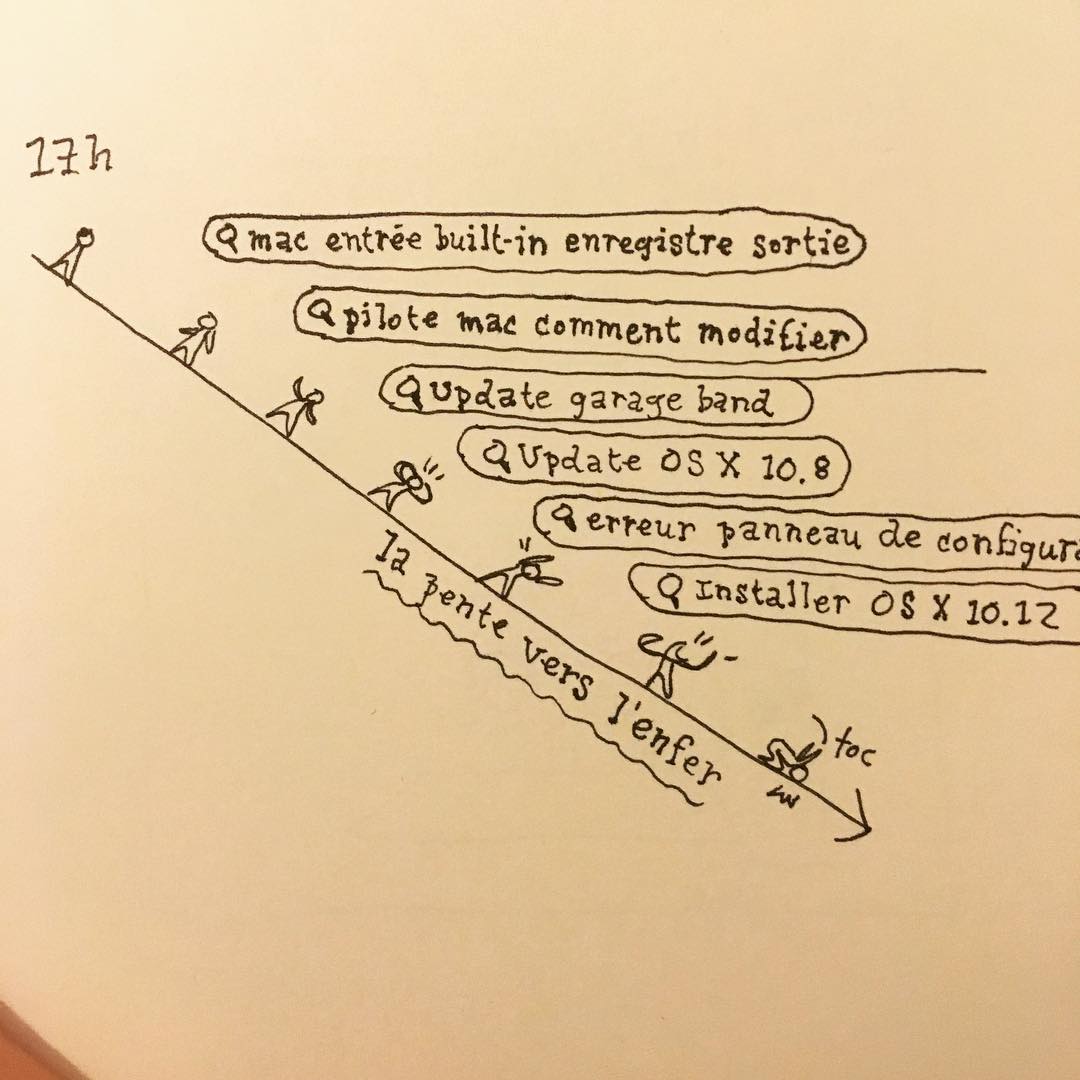 17h
mac entrée built-in enregistre sortie
pilote mac comment modifier
Update garage band
Update OS X 10.8
erreur panneau de configura
Installer OS X 10.12
la pente vers l'enfer
toc